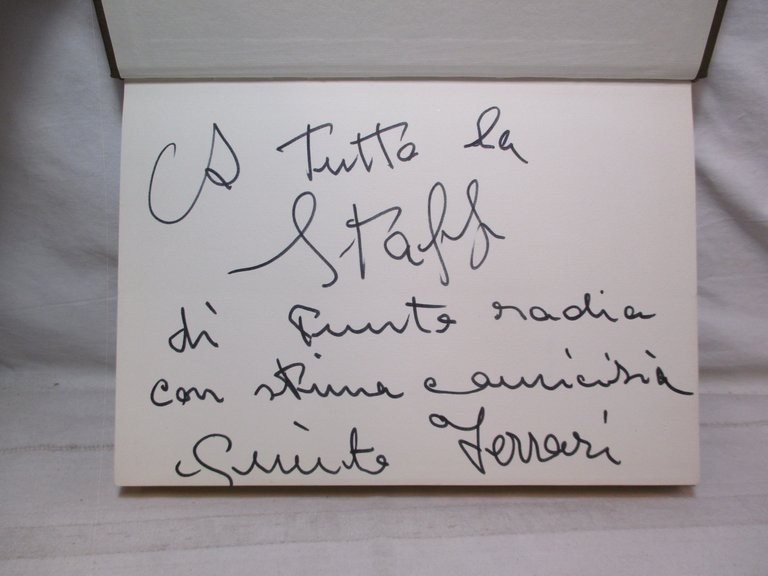 A tutto la
Staff
di Punto radio
con stima e amicizia
Quinto Ferrari